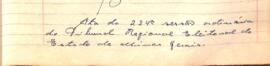 Ata da 224ª sessão ordinária
do Tribunal Regional Eleitoral do
Estado de Minas Gerais.